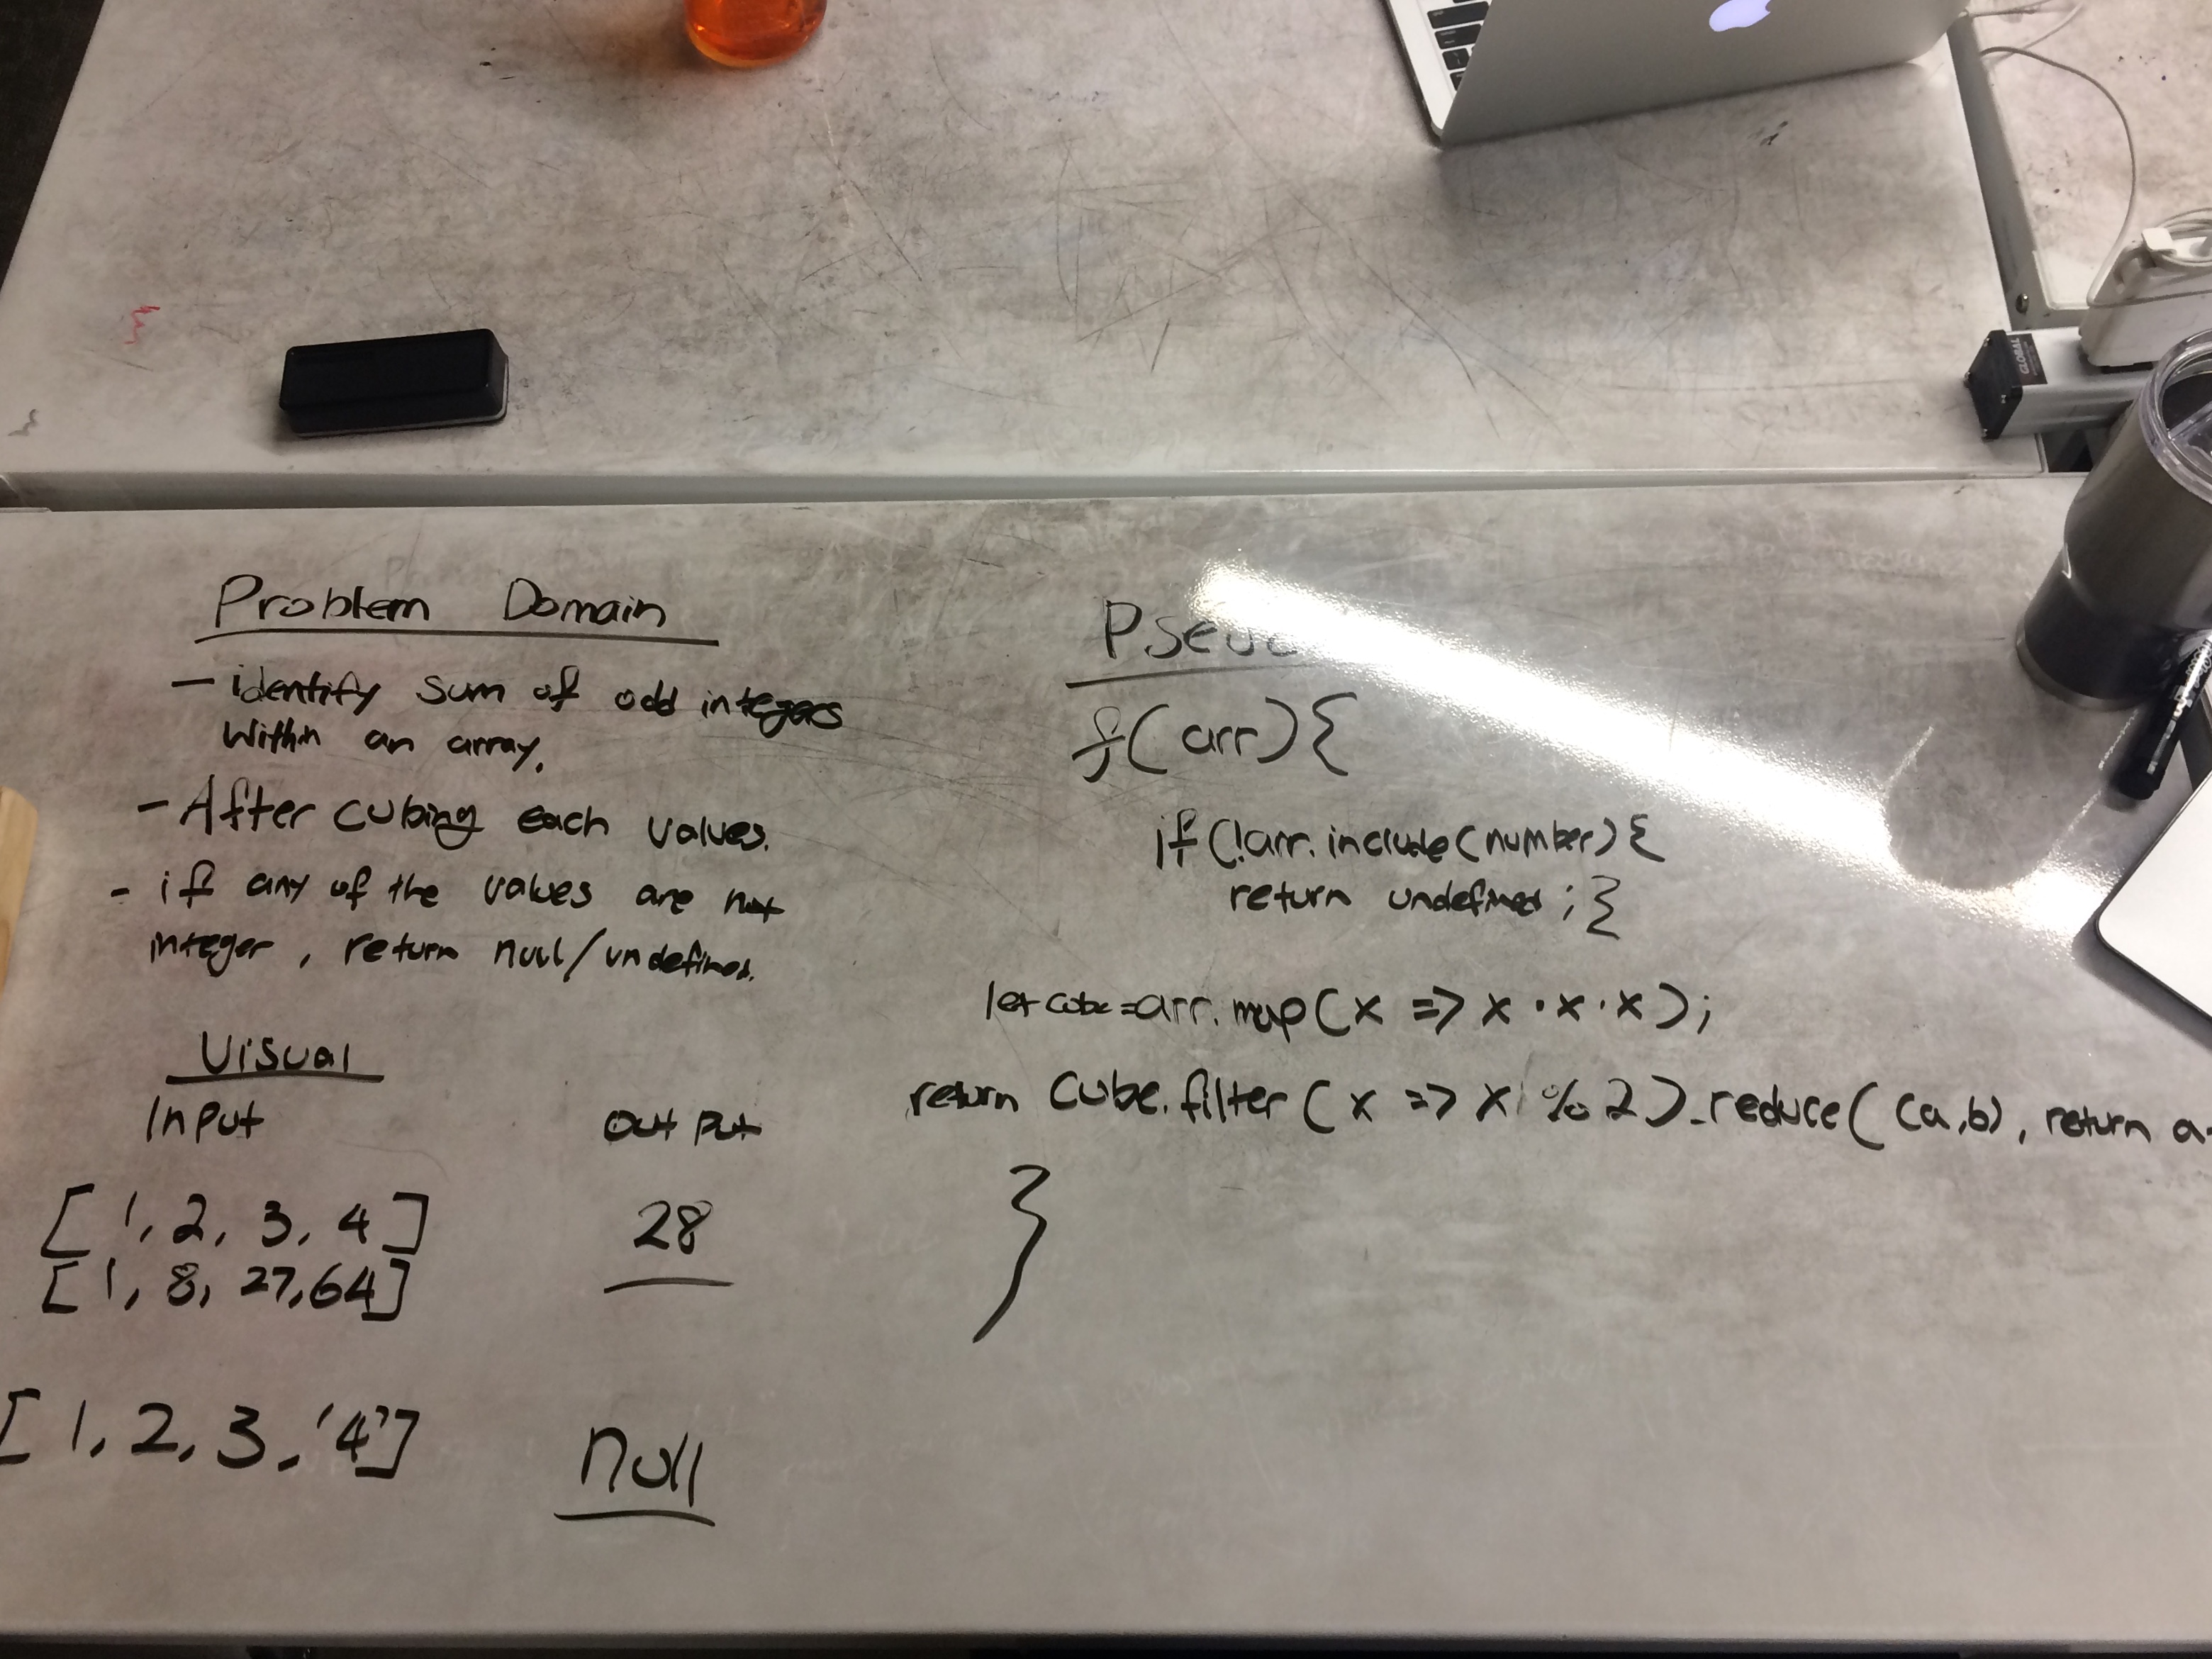 GLOBAL
Problem Domain
- identify sum of odd integers
within an array.
- After cubing each values.
- if any of the values are not
integer, return null/undefined.
Visual
Input
Output
[1, 2, 3, 4]
28
[1, 8, 27, 64]
[1, 2, 3, '4']
null
f(arr){
if(!arr.include(number){
return undefined; }
let cube=arr.map(x => x·x·x);
return cube.filter(x => x % 2).reduce((a,b), return a
}